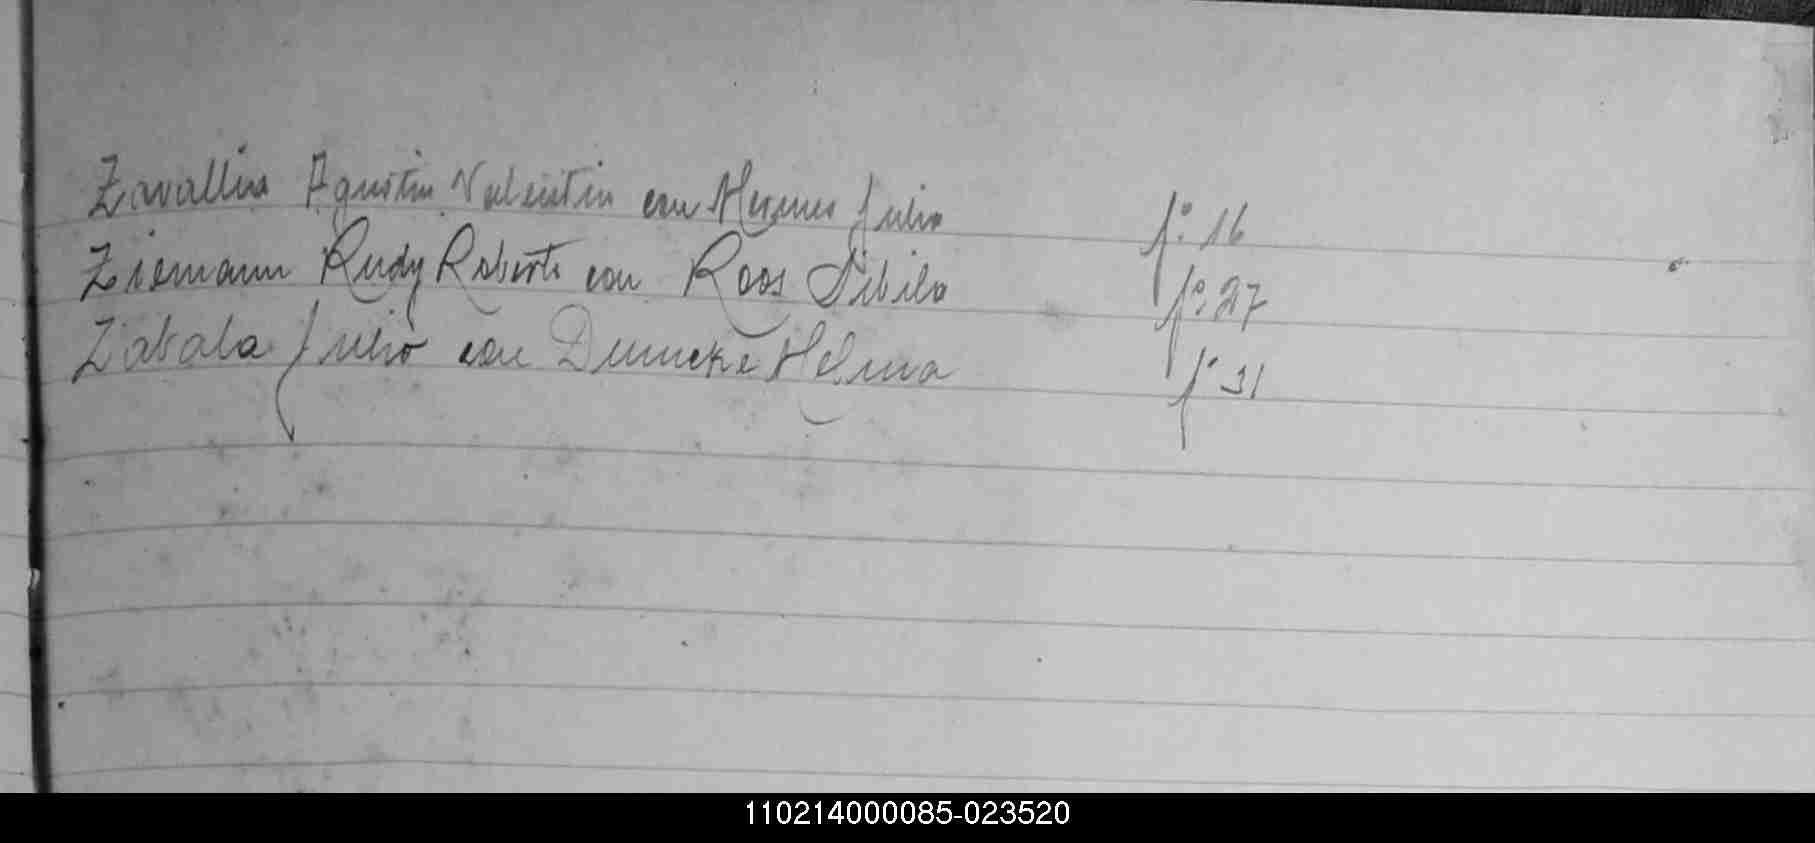 Zavallia Agustin Valentin con Hermes Julia fº: 16
Ziemann Rudy Roberto con Roos Sibila fº: 27
Zabala Julio con Dumcke Helma fº 31
110214000085-023520